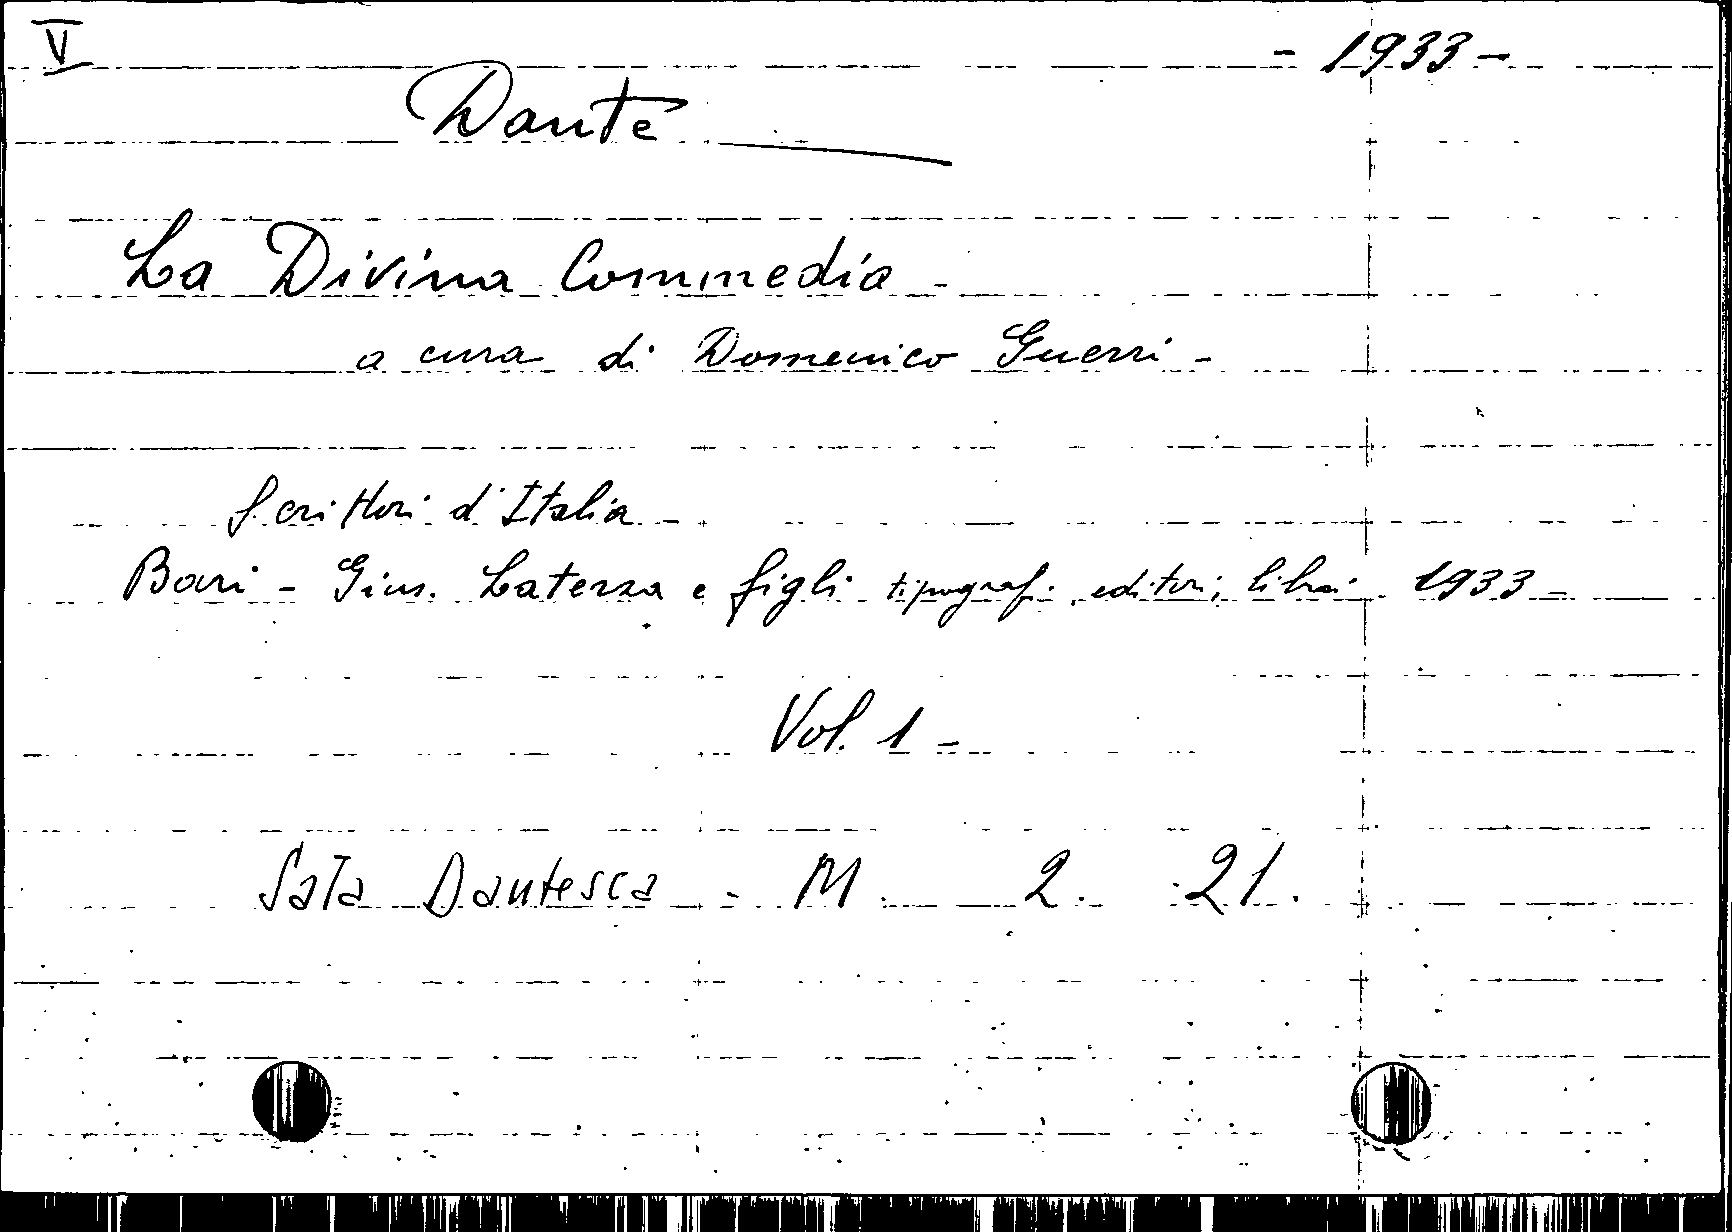 V - 1933 -
Dante
La Divina Commedia -
a cura di Domenico Guerri -
Scrittori d'Italia -
Bari - Gius. Laterza e figli tipografi, editori, librai 1933 -
Vol. 1 -
Sala Dantesca - M. 2. 21.